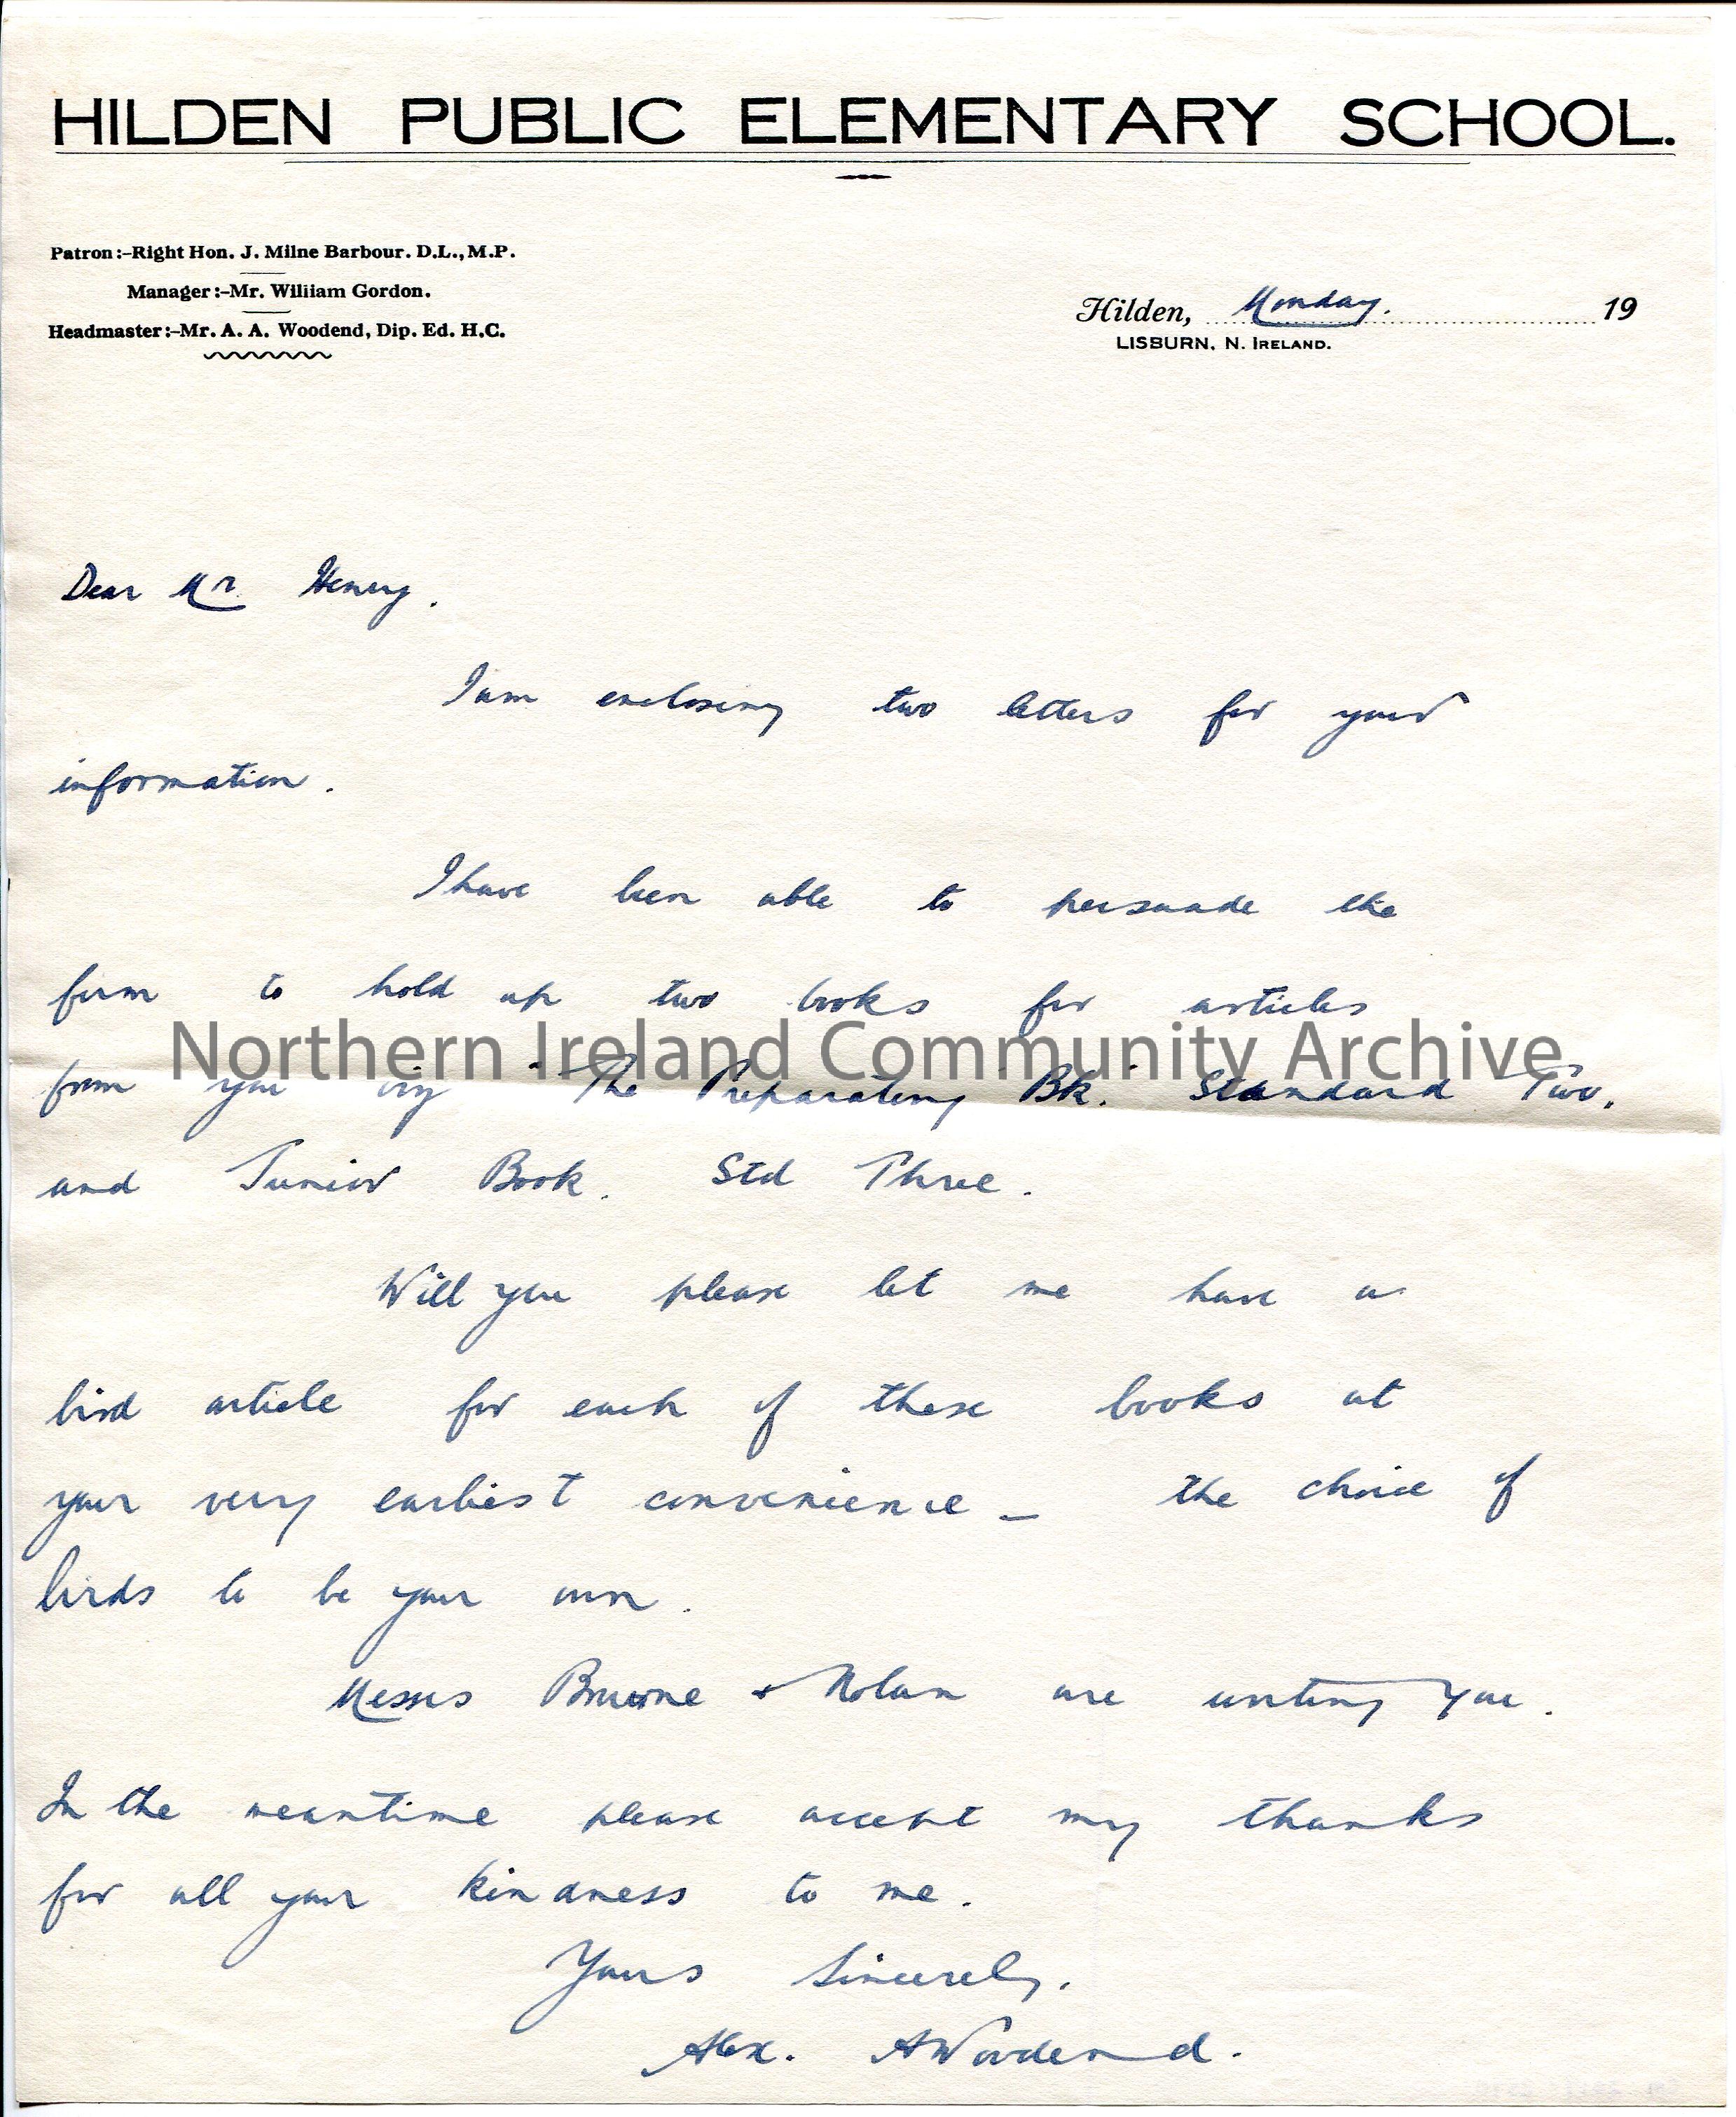 HILDEN PUBLIC ELEMENTARY SCHOOL.
Patron:-Right Hon. J. Milne Barbour. D.L., M.P.
Manager:-Mr. William Gordon.
Headmaster:-Mr. A. A. Woodend, Dip. Ed. H.C.
Hilden, Monday. 19
LISBURN, N. IRELAND.
Dear Mr. Henry.
I am enclosing two letters for your
information.
I have been able to persuade the
firm to hold up two books for articles
Northern Ireland Community Archive
from you viz "The Preparatory Bk." Standard Two,
and Junior Book. Std Three.
Will you please let me have a
bird article for each of these books at
your very earliest convenience – the choice of
birds to be your own.
Messrs Browne + Nolan are writing you.
In the meantime please accept my thanks
for all your kindness to me.
Yours Sincerely,
Alex. A Woodend.